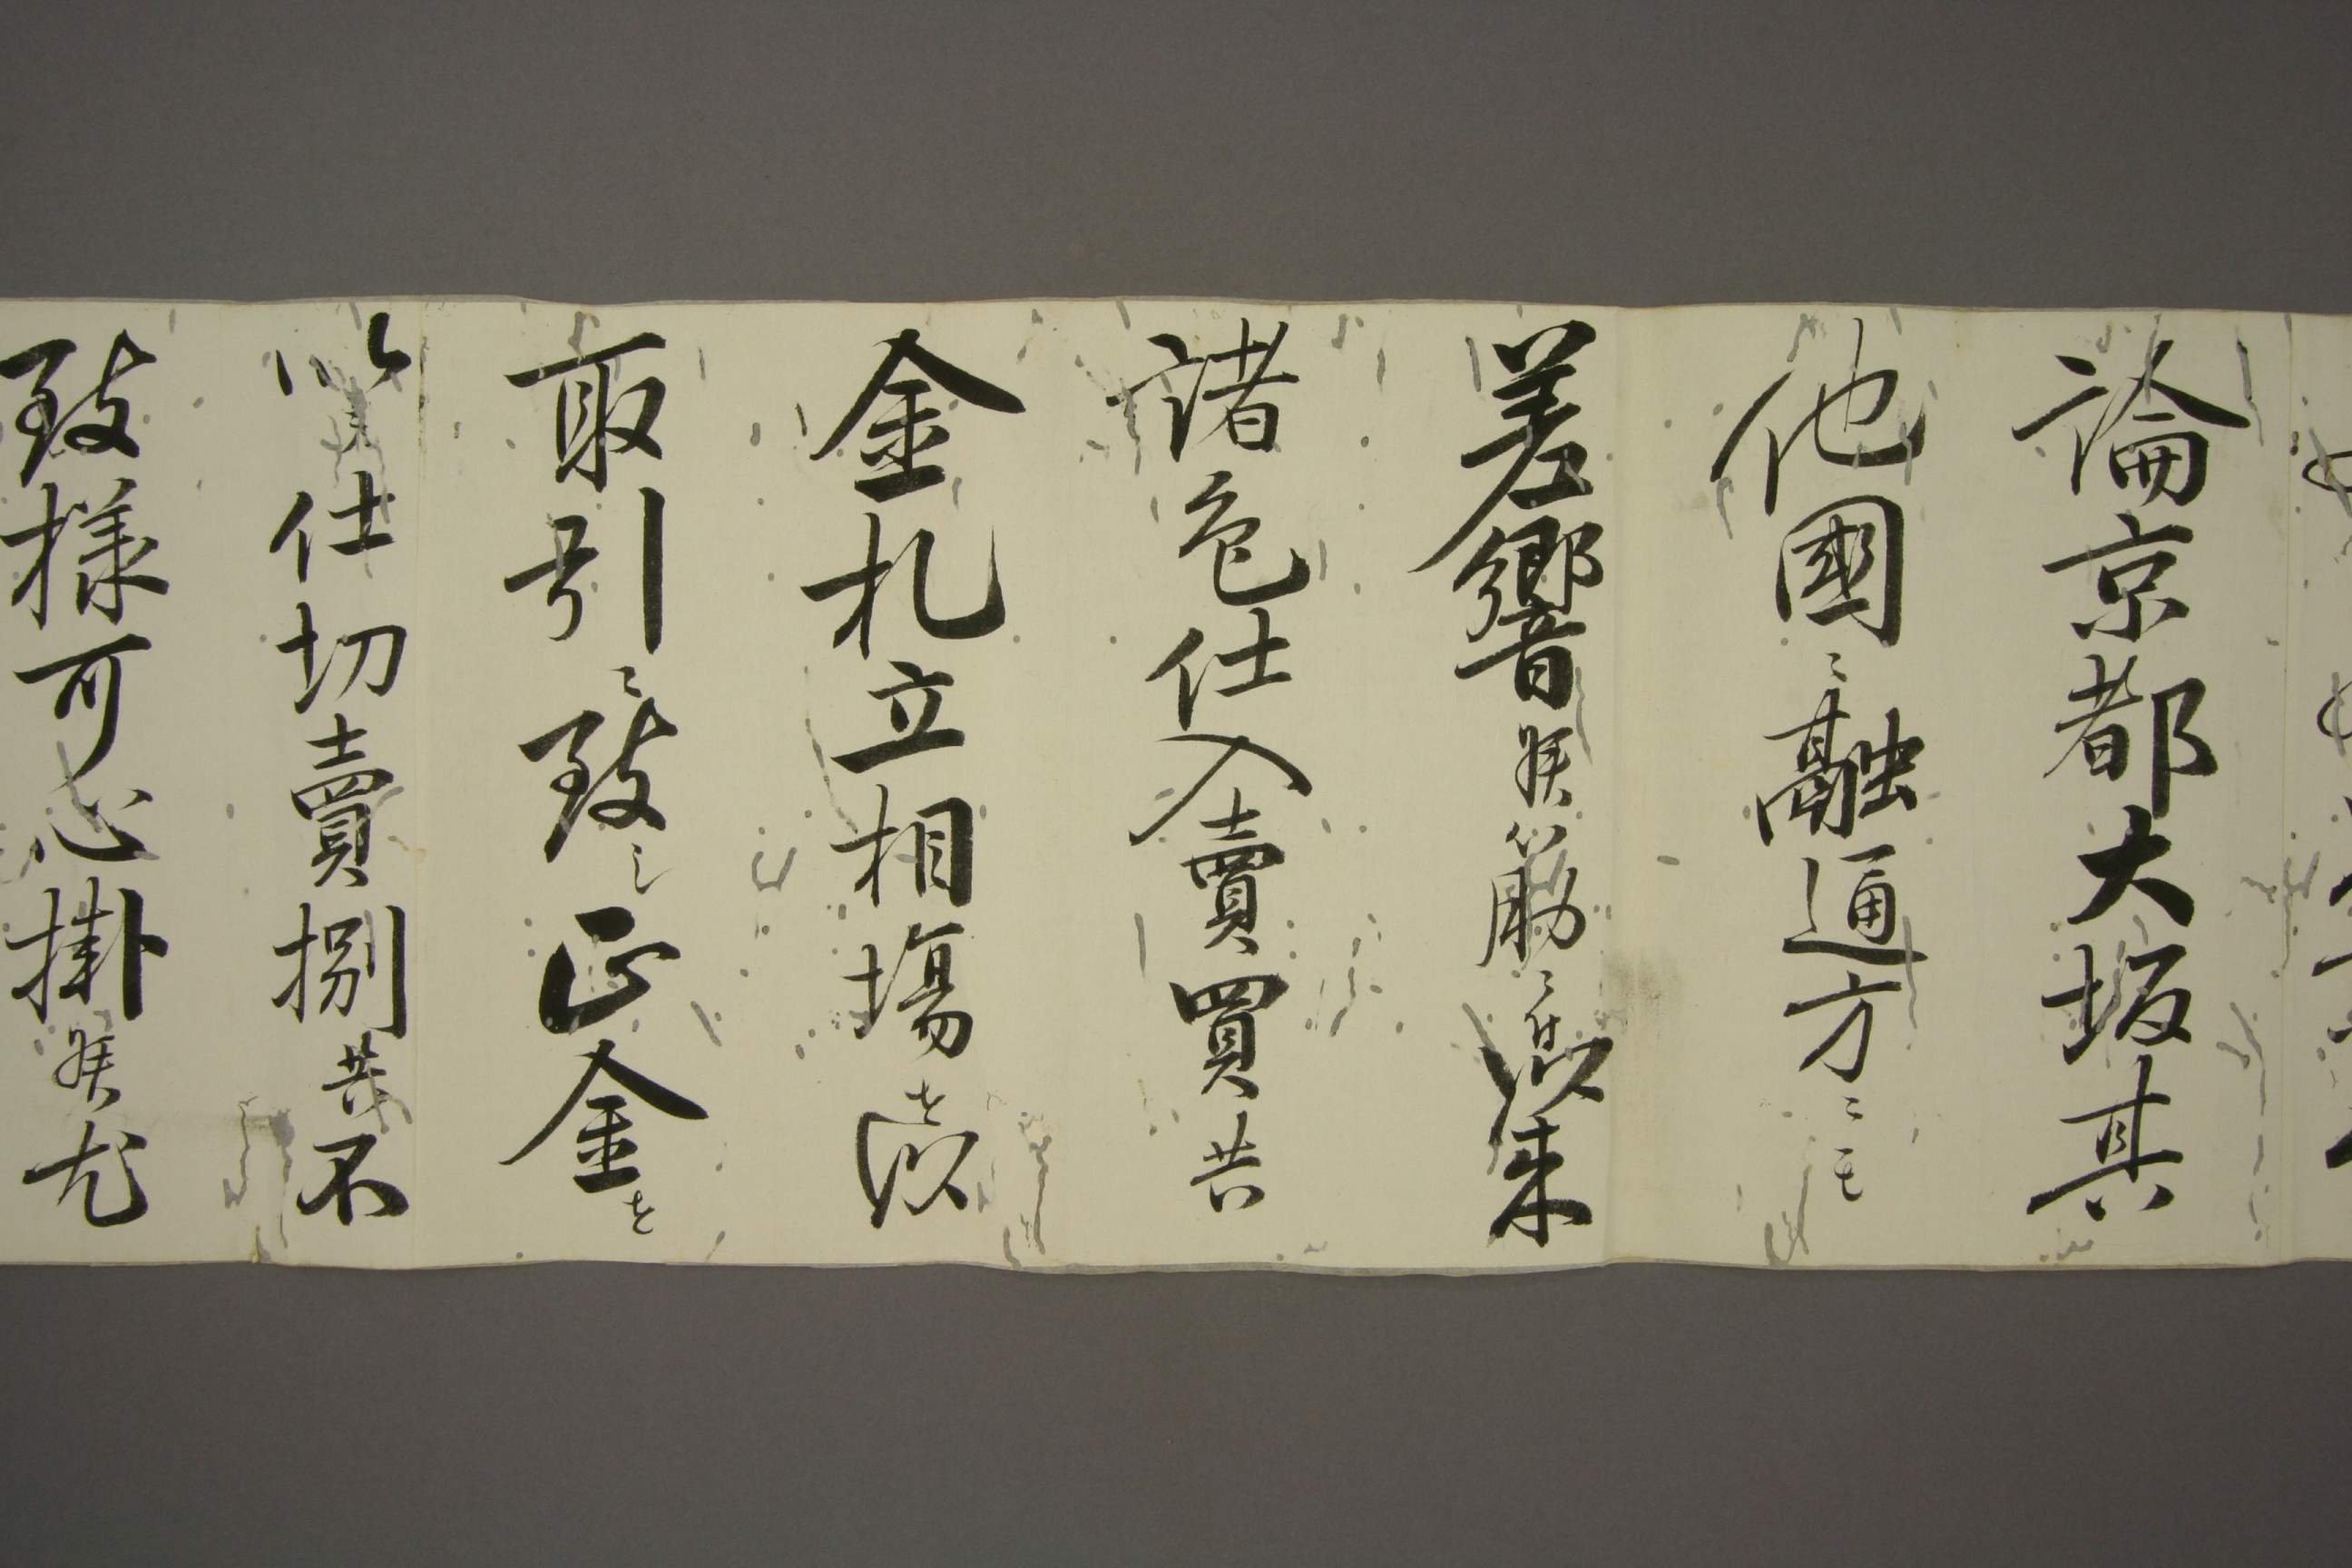 論京都大坂其
他國ニ融通方ニも
差響候筋ニ付以来
諸色仕入賣買共
金札立相場を以
取引ニ致し正金を
以仕切賣捌共不
致様可心掛候尤